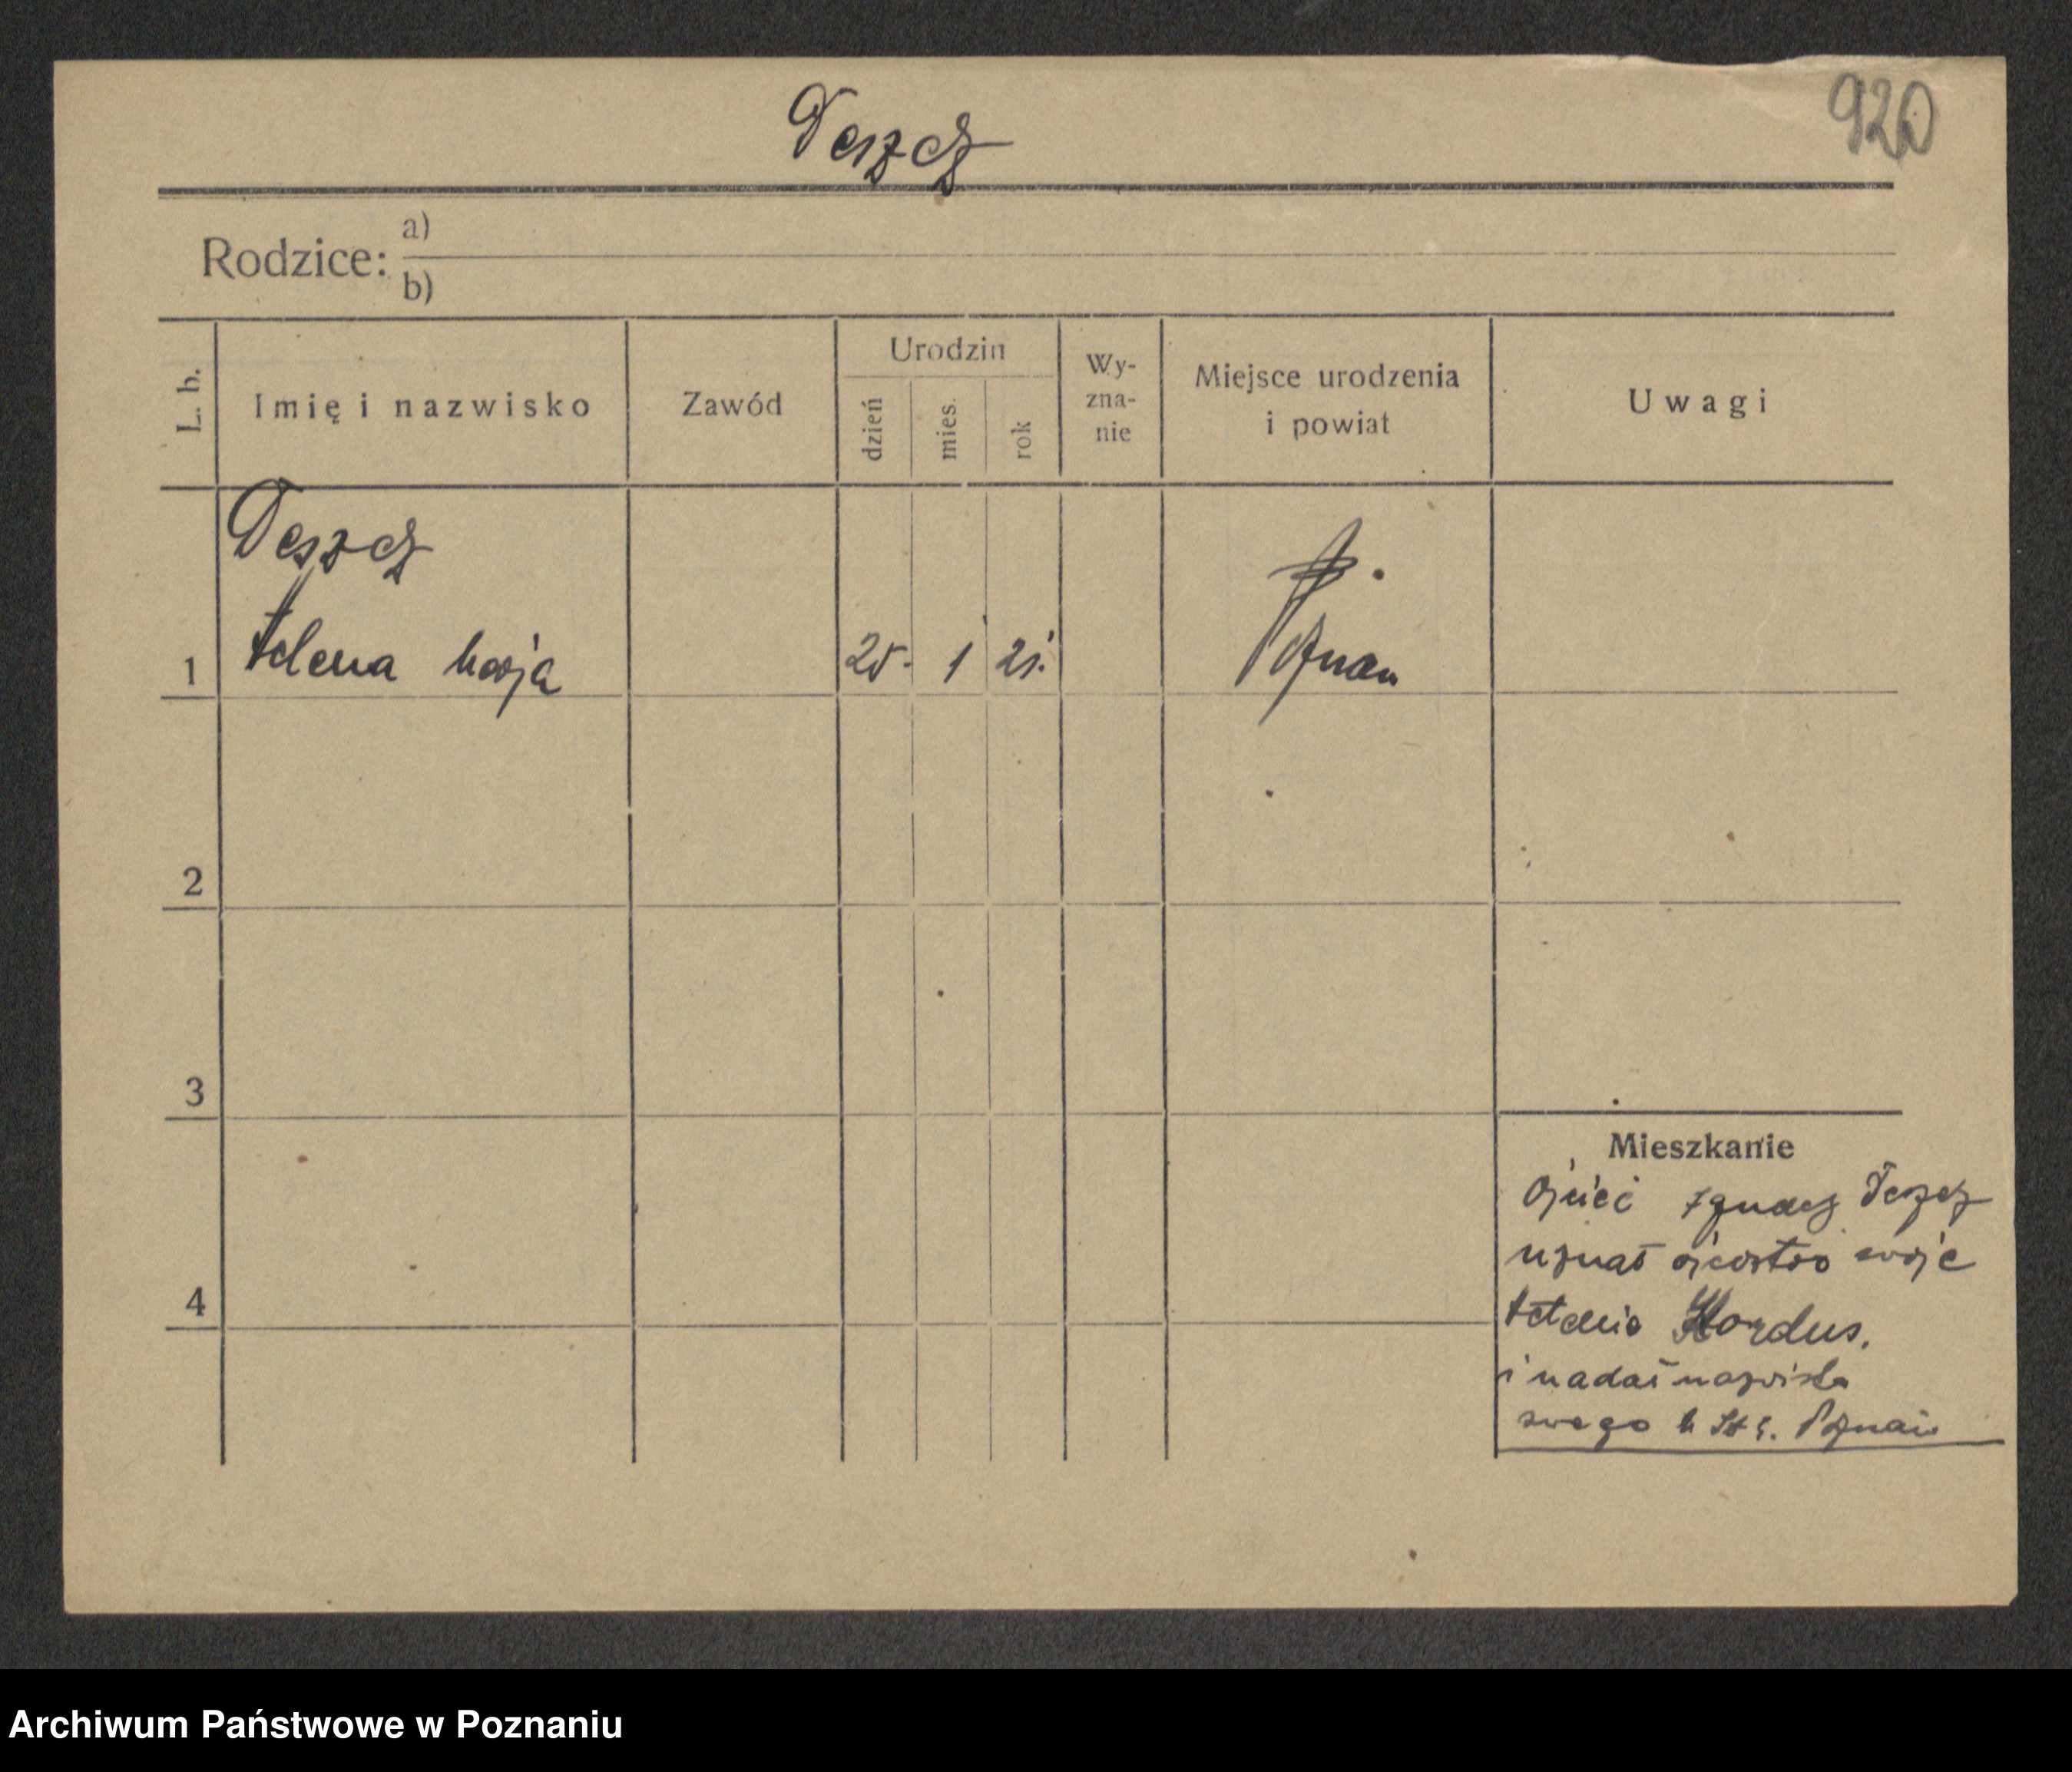 Deszcz
920
Rodzice: a)
b)
L. b.
Imię i nazwisko
Zawód
Urodzin
dzień
mies.
rok
Wy-
zna-
nie
Miejsce urodzenia
i powiat
Uwagi
Deszcz
1 Helena 1 21. Poznań
2
3
4
Mieszkanie
Ojciec Ignacy Deszcz
uznał ojcostwo swoje
Kordus.
i nadał nazwisko
swego Poznań
Archiwum Państwowe w Poznaniu